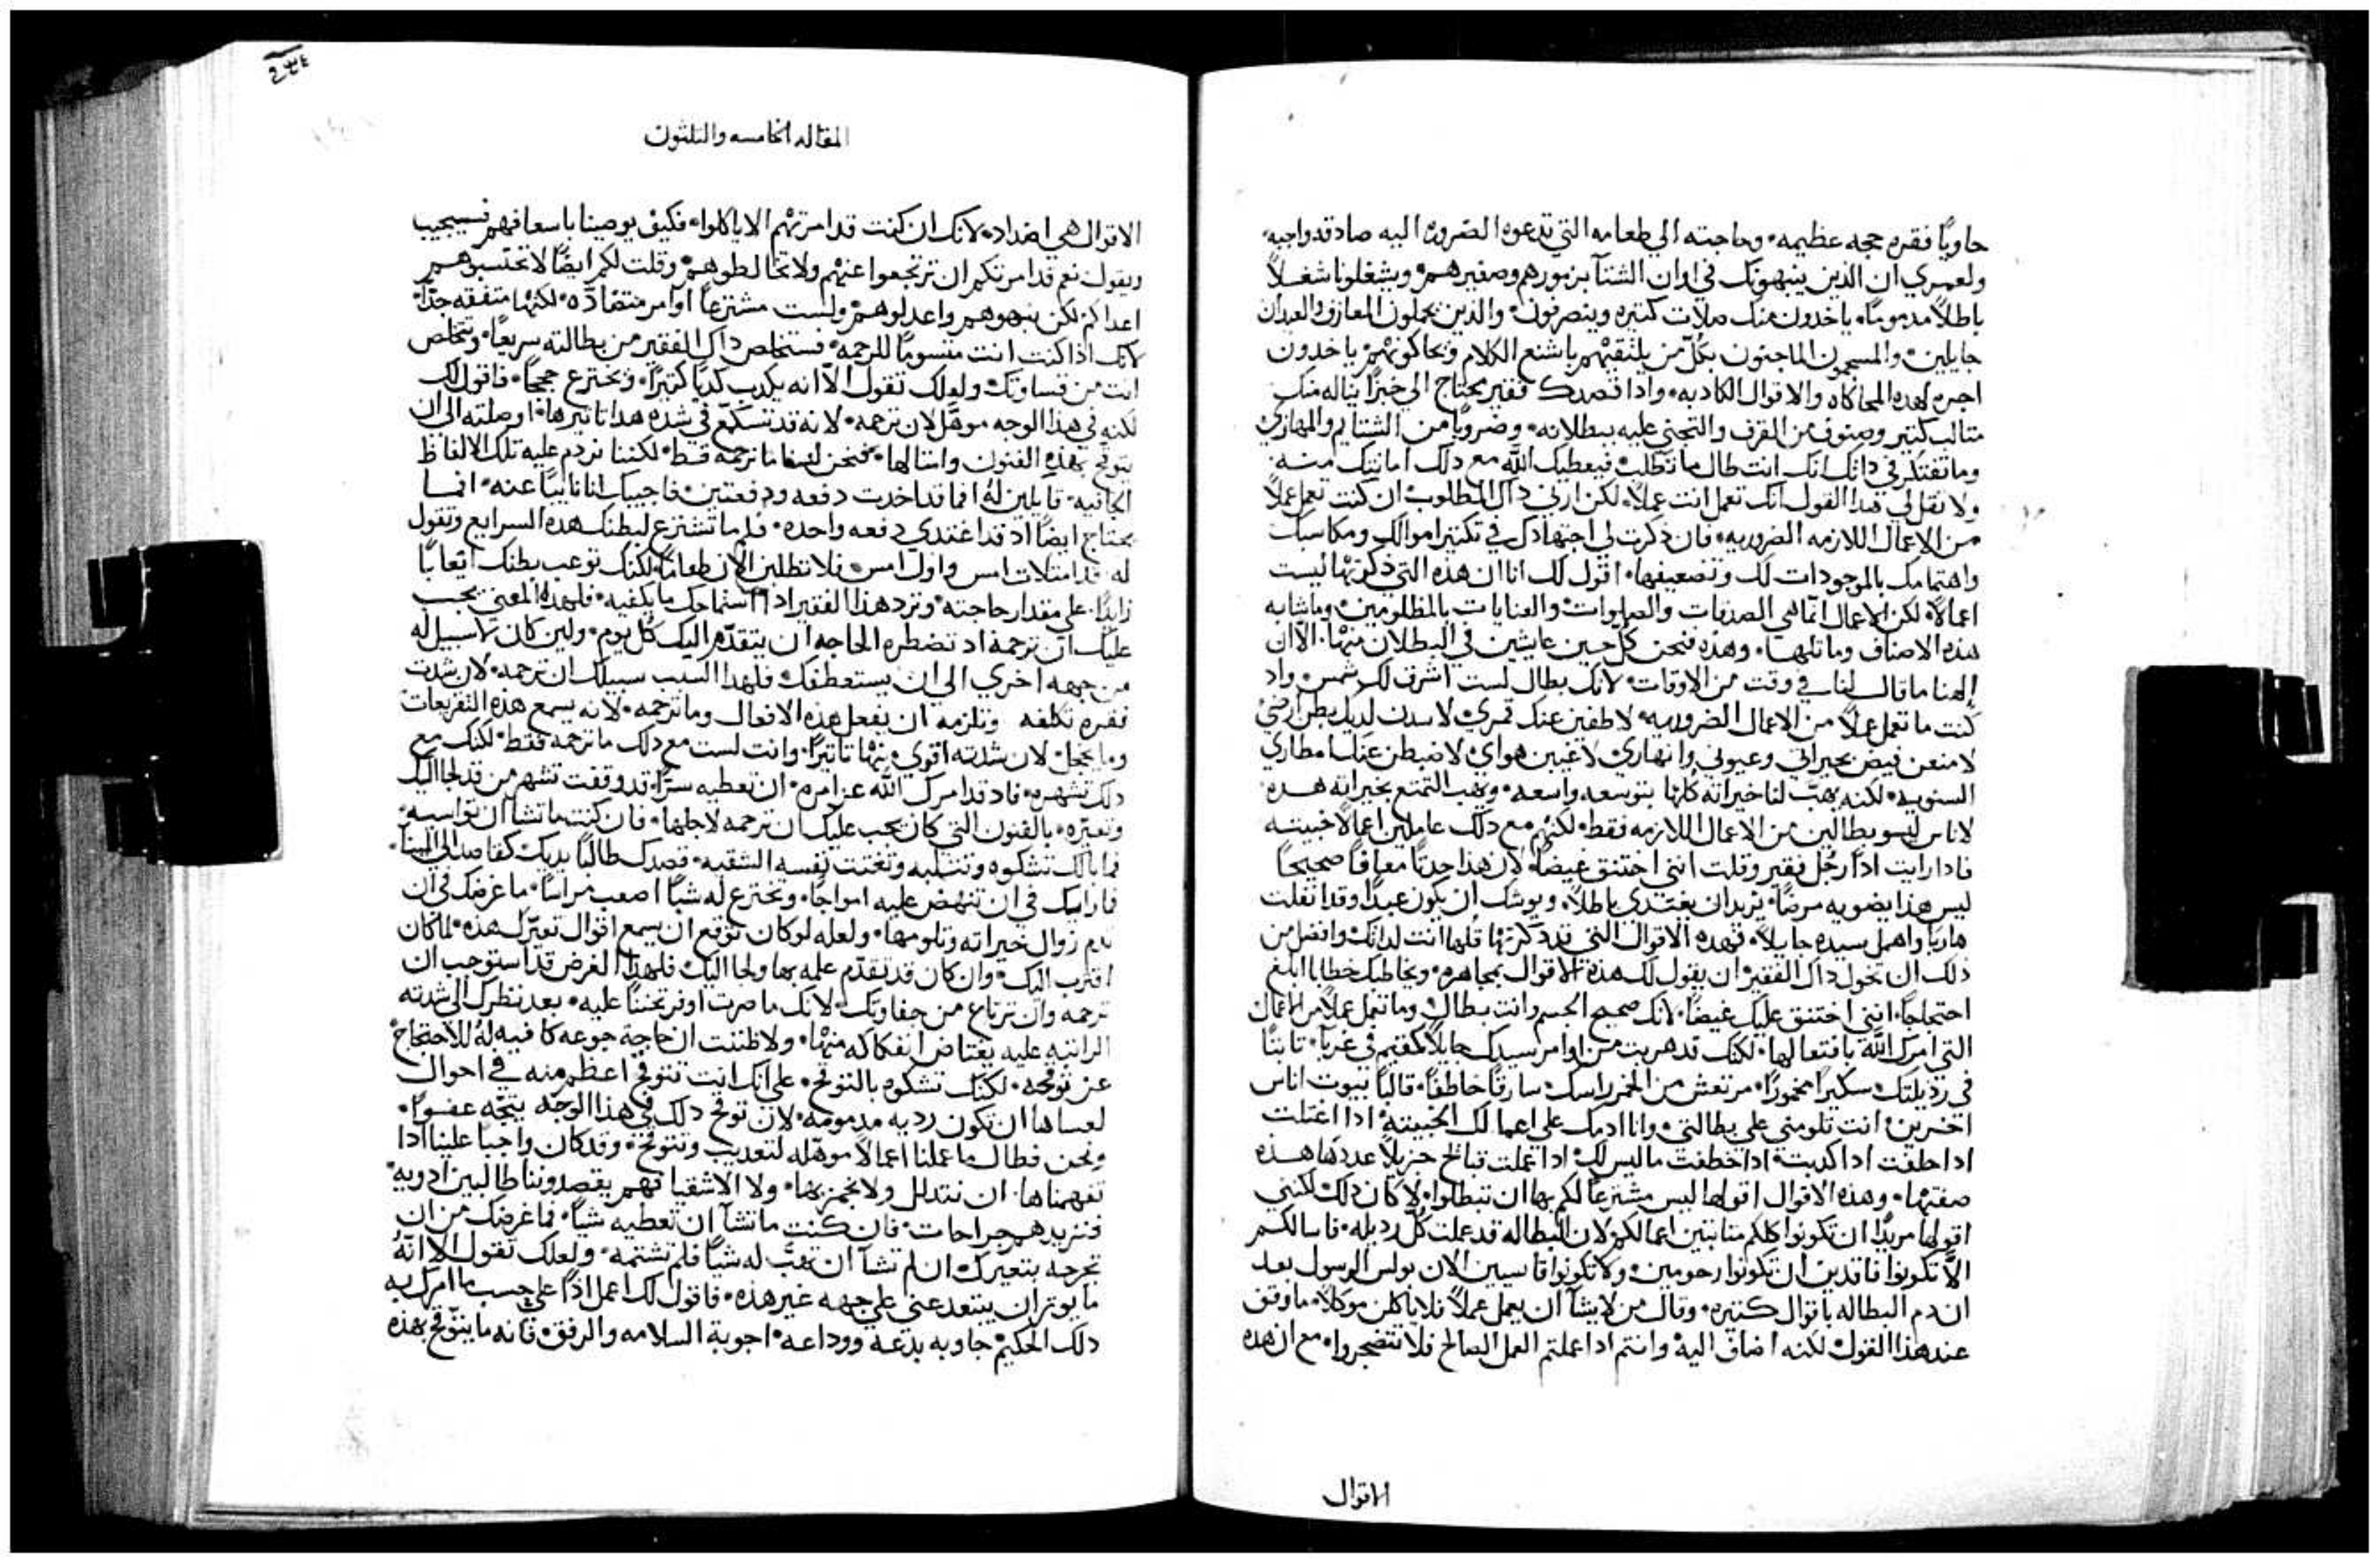 حاويًا فقره حجه عظيمه٠ وحاجته الي طعامه التي تدعوه الضروره اليه صادقه واجبه٠
ولعمري ان الذين ينبهونك في اوان الشتآ بزمورهم وصفيرهم٠ ويشغلونا شغلاً
باطلاً مدمومًا٠ ياخدون منك صلات كتيره وينصرفون٠ والذين يحملون المعازف والعيدان
جايلين٠ والمسمون الماجنون بكل من يلتقيهم باشنع الكلام وتحاكونهم ياخدون
اجره لهده المحاكاه والاقوال الكادبه٠ وادا قصدك فقير يحتاج الي خبزًا يناله منك
متالب كتير وصنوف من القرف والتجني عليه ببطلانه٠ وضروبًا من الشتايم والمهازي
وما تفتكر في داتك انك انت طال ما تطلت فيعطيك الله مع دلك امانتك منه٠
ولا تقل لي هدا القول انك تعمل انت عملاً٠ لكن ارني داك المطلوب ان كنت تعمل عملاً
من الاعمال اللازمه الضروريه٠ فان دكرت لي اجتهادك في تكتير اموالك ومكاسبك
واهتمامك بالموجودات لك وتضعيفها٠ اقول لك انا ان هذه التي ذكرتها ليست
اعمالاً٠ لكن الاعمال انما هي الصدقات والصلوات٠ والعنايات بالمظلومين٠ وما شابه
هذه الاصناف وماتلها٠ وهذه فنحن كل حين عايشين في البطلان منها٠ الا ان
الهنا ما قال لنا في وقت من الاوقات٠ لانك بطال لست اشرق لك شمس٠ واد
كنت ما تعمل عملاً من الاعمال الضروريه٠ لاطفين عنك قمري٠ لاسدن لديك بطن ارضي٠
لامنعن فيض بحيراتي وعيوني وانهاري٠ لاغيبن هواي٠ لاضبطن عنك امطاري
السنويه٠ لكنه يهب لنا خيراته كلها بتوسعه واسعه٠ ويهب التمتع بخيراته هده
لاناس ليسو بطالين من الاعمال اللازمه فقط٠ لكنهم مع دلك عاملين اعمالاً خبيته
فادا رايت اذًا رجل فقير وقلت انني اختنق غيضًا٠ لان هذا حدتًا معافًا صحيحًا
ليس هذا بضويه مرضًا٠ يريد ان يغتدي باطلاً٠ ويوشك ان يكون عبدًا وقد انفلت
هاربًا واهمل سيده جايلاً٠ فهده الاقوال التي قد دكرتها قلها انت لداتك وافضل من
دلك ان تخول داك الفقير ان يقول لك هذه الاقوال بمجاهره٠ ويخاطبك خطابًا ابلغ
احتجاجًا٠ انني اختنق عليك غيضًا٠ لانك صحيح الجسم وانت بطال وما تعمل عملاً من الاعمال
التي امرك الله بافتعالها٠ لكنك قد هربت من اوامر سيدك جايلاً كمقيم في غربآ٠ تابتًا
في رديلتك٠ سكيرًا مخمورًا٠ مرتعش من الخمر راسك٠ سارقًا خاطفًا٠ قالبًا بيوت اناس
اخرين٠ انت تلومني علي بطالتي٠ وانا ادمك علي اعمالك الخبيته٠ ادا اغتلت
ادا حلفت ادا كدبت٠ ادا خطفت ما ليس لك٠ ادا عملت قبايح جزيلاً عددها هذه
صفتها٠ وهذه الاقوال اقولها ليس مشترعًا لكم بها ان تبطلوا٠ لا كان دلك٠ لكنني
اقولها مريدًا ان تكونوا كلكم متابتين اعمالكم٠ لان البطاله قد علت كل رديله٠ فاسالكم
الا تكونوا فاقدين ان تكونوا رحومين٠ ولا تكونوا قاسيين الان بولس الرسول بعد
ان دم البطاله باقوال كتيره٠ وقال من لا يشآ ان يعمل عملاً فلا ياكلن موكلاً٠ ما وقف
عند هذا القول٠ لكنه اضاف اليه٠ وانتم ادا عملتم العمل الصالح فلا تتضجروا٠ مع ان هده
الاقوال
٢٣٤
المقاله الخامسه والتلتون
الاقوال هي اضداد٠ لانك ان كنت قد امرتهم الا ياكلوا٠ فكيف يوصينا باسعافهم فسيجيب
ويقول نعم قد امرتكم ان ترتجعوا عنهم ولا تخالطوهم٠ وقلت لكم ايضًا لا تحتسبوهم
اعداكم لكن نبهوهم واعدلوهم٠ ولست مشترعًا اوامر متضاده٠ لكنها متفقه جدًا٠
لانك اذا كنت انت متسومًا للرحمه٠ فستخلص داك الفقير من بطالته سريعًا٠ وتخلص
انت من قساوتك ولعلك تقول الا انه يكدب كدبًا كتيرًا٠ ويخترع حججًا٠ فاقول لك
لكنه في هذا الوجه موهل لان ترحمه٠ لانه قد تسكع في شده هدا تاتيرها٠ اوصلته الي ان
يتوقح بهذه الفنون وامتالها٠ فنحن لسنا ما نرحمه قط٠ لكننا نردم عليه تلك الالفاظ
الجافيه٠ قايلين له افما قد اخدت دفعه ودفعتين٠ فاجيبك انا نايبًا عنه٠ افما
يحتاج ايضًا اد قد اغتدي دفعه واحده٠ فلم ما تشترع لبطنك هده السرايع وتقول
له قد امتلات امس واول امس٠ فلا تطلبن الان طعامًا٠ لكنك توعب بطنك ايعابًا
زايدًا علي مقدار حاجته٠ وترد هذا الفقير ادا استماحك ما يكفيه٠ فلهدا المعني يجب
عليك ان ترحمه اد تضطره الحاجه ان يتقدم اليك كل يوم٠ ولين كان لا سبيل له
من جهه اخري الي ان يستعطفك٠ فلهدا السبب سبيلك ان ترحمه٠ لان شدت
فقره تكلفه وتلزمه ان يفعل هذه الافعال وما ترحمه٠ لانه يسمع هذه التقريعات
وما يخجل لان شدته اقوي منها تاتيرًا٠ وانت لست مع دلك ما ترحمه فقط٠ لكنك مع
دلك تشهره٠ فاد قد امرك الله عز امره٠ ان تعطيه سرًا٠ قد وقفت تشهر من قد لجا اليك
وتعيره٠ بالفنون التي كان يجب عليك ان ترحمه لاجلها٠ فان كنت ما تشا ان تواسيه٠
فما بالك تشكوه وتتلبه وتعنت نفسه الشقيه٠ قصدك طالبًا يديك كقاصد الي المينا٠
فارايك في ان تنهض عليه امواجًا٠ وتخترع له شيًا اصعب مراسًا٠ ما غرضك في ان
تدم زوال خيراته وتلومها٠ ولعله لو كان توقع ان يسمع اقوال تعيرك هذه٠ لما كان
اقترب اليك٠ وان كان قد تقدم علمه بها ولجا اليك٠ فلهدا الغرض قد استوجب ان
ترحمه وان ترتاع من جفاوتك٠ لانك ما صرت اوفر تحننًا عليه٠ بعد نظرك الي شدته
الراتبه عليه يعتاض انفكاكه منها٠ ولا ظننت ان حاجة جوعه كافيه له للاحتجاج
عن توقحه٠ لكنك تشكوه بالتوقح٠ علي انك انت تتوقح اعظم منه في احوال
لعساها ان تكون رديه مدمومه٠ لان توقح دلك في هذا الوجه يتجه عفوًا٠
ونحن فطال ما عملنا اعمالاً موهله لتعديب ونتوقح٠ وقد كان واجبًا علينا ادا
تفهمناها٠ ان نتدلل ولا نجمز بها٠ ولا الاشقيا نهم يقصدوننا طالبين ادويه٠
فنزيدهم جراحات٠ فان كنت ما تشآ ان تعطيه شيًا٠ فما غرضك من ان
تجرحه بتعيرك٠ ان لم تشآ ان تهب له شيًا فلم تشتمه٠ ولعلك تقول الا انه
ما يوتر ان يبتعد عني علي جهه غير هذه٠ فاقول لك اعمل اذًا علي حسب ما امرك به
دلك الحكيم جاوبه بدعه ووداعه٠ اجوبة السلامه والرفق٠ فانه ما يتوقح بهذه